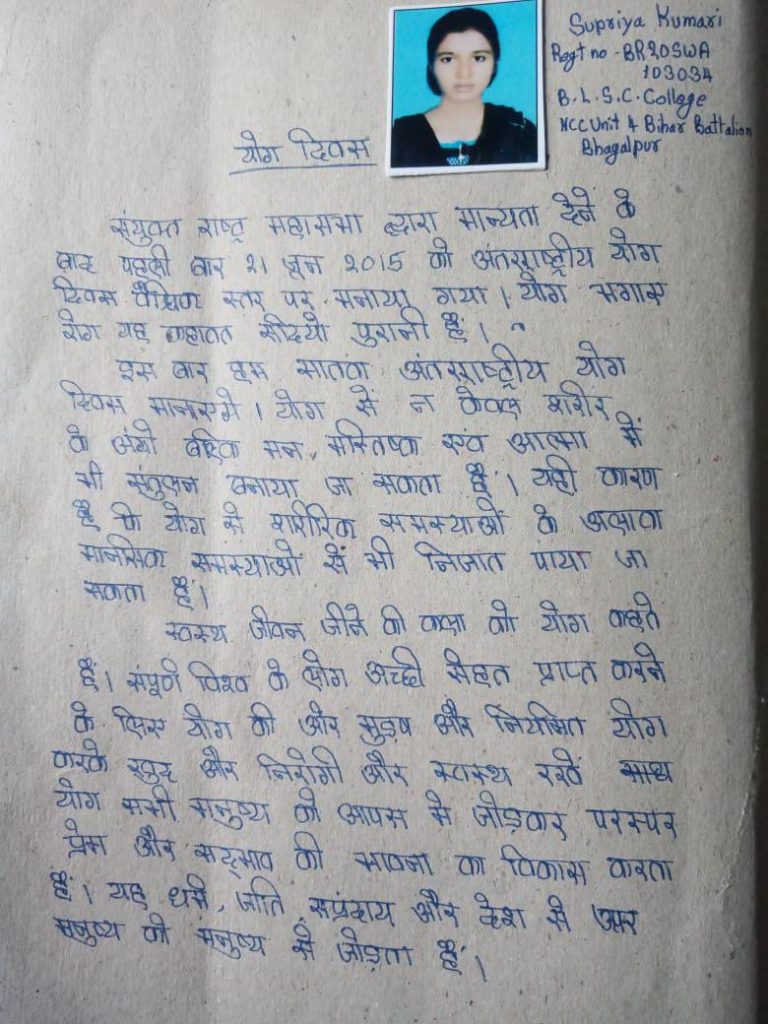 Supriya Kumari
Regt no - BR20SWA
103034
B.L.S.C. College
NCC Unit 4 Bihar Battalion
Bhagalpur
योग दिवस
संयुक्त राष्ट्र महासभा द्वारा मान्यता देने के
बाद पहली बार 21 जून 2015 को अंतराष्ट्रीय योग
दिवस वैश्विक स्तर पर मनाया गया। योग भगाए
रोग यह कहावत सदियो पुरानी हैं।
इस बार हम सातवां अंतराष्ट्रीय योग
दिवस मानाएगे। योग से न केवल शरीर
के अंगो बल्कि मन, मस्तिष्क एवं आत्मा में
भी संतुलन बनाया जा सकता हैं। यही कारण
हैं कि योग से शारीरिक समस्याओं के अलावा
मानसिक समस्याओ से भी निजात पाया जा
सकता हैं।
स्वस्थ जीवन जीने की कला को योग कहते
हैं। संपूर्ण विश्व के लोग अच्छी सेहत प्राप्त करने
के लिए योग की ओर मुड़ष और नियमित योग
करके खुद और निरोगी और स्वस्थ रखें साथ
योग सभी मनुष्य को आपस मे जोड़कर परस्पर
प्रेम और सद्भाव की भावना का विकास करता
हैं। यह धर्म, जाति, संप्रदाय और देश से ऊपर
मनुष्य को मनुष्य से जोड़ता हैं।